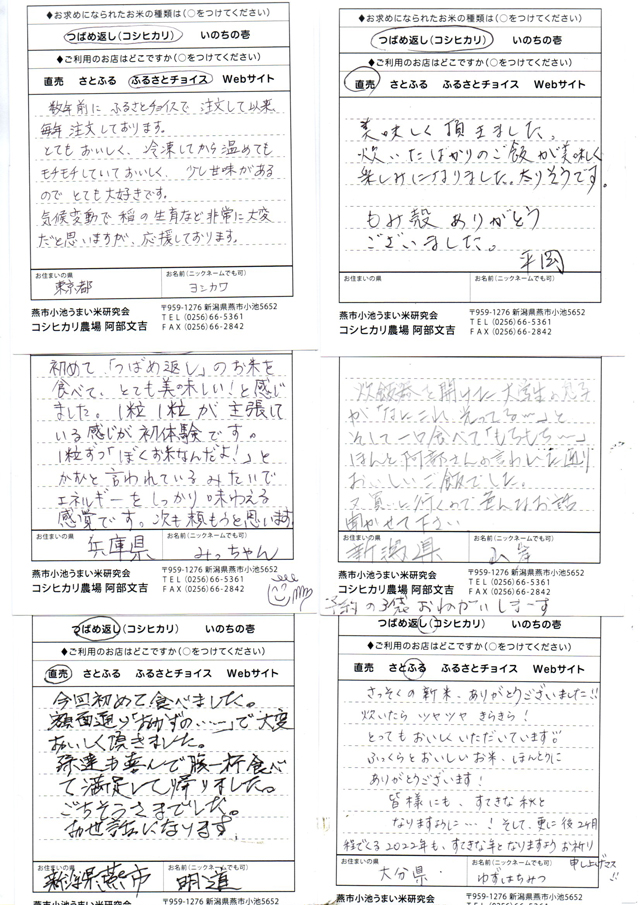 ◆お求めになられたお米の種類は（○をつけてください）
つばめ返し（コシヒカリ）　いのちの壱
◆ご利用のお店はどこですか（○をつけてください）
直売　さとふる　ふるさとチョイス　Webサイト
数年前に ふるさとチョイスで 注文して以来、
毎年 注文しております。
とても おいしく、冷凍してから温めても
モチモチしていておいしく、少し甘味がある
ので とても大好きです。
気候変動で 稲の生育など非常に大変
だと思いますが、応援しております。
お住まいの県
お名前（ニックネームでも可）
東京都
ヨシカワ
燕市小池うまい米研究会
コシヒカリ農場 阿部文吉
〒959-1276 新潟県燕市小池5652
TEL (0256)66-5361
FAX (0256)66-2842
◆お求めになられたお米の種類は（○をつけてください）
つばめ返し（コシヒカリ）　いのちの壱
◆ご利用のお店はどこですか（○をつけてください）
直売　さとふる　ふるさとチョイス　Webサイト
美味しく 頂きました。
炊いたばかりのご飯が美味しく
楽しみになりました。太りそうです。
もみ殻 ありがとう
ございました。
平岡
お住まいの県
お名前（ニックネームでも可）
燕市小池うまい米研究会
コシヒカリ農場 阿部文吉
〒959-1276 新潟県燕市小池5652
TEL (0256)66-5361
FAX (0256)66-2842
初めて「つばめ返し」のお米を
食べて、とても美味しい！と感じ
ました。1粒1粒が主張して
いる感じが初体験です。
1粒ずつ「ぼくお米なんだよ！」と
かなと言われているみたいで
エネルギーをしっかり味わえる
感覚です。次も頼もうと思います。
お住まいの県
お名前（ニックネームでも可）
兵庫県
みっちゃん
燕市小池うまい米研究会
コシヒカリ農場 阿部文吉
〒959-1276 新潟県燕市小池5652
TEL (0256)66-5361
FAX (0256)66-2842
炊飯器を開けた 大学生の息子
が「なにこれ 光ってる〜」と
そして一口食べて「もちもち〜」
ほんと阿部さんの言われた通り
おいしいご飯でした。
又 買いに行くので 色んなお話
聞かせて下さい
お住まいの県
お名前（ニックネームでも可）
新潟県
燕市小池うまい米研究会
コシヒカリ農場 阿部文吉
〒959-1276 新潟県燕市小池5652
TEL (0256)66-5361
FAX (0256)66-2842
おねがいします
つばめ返し（コシヒカリ）　いのちの壱
◆ご利用のお店はどこですか（○をつけてください）
直売　さとふる　ふるさとチョイス　Webサイト
今回初めて食べました。
額面通り「おかずの……」で大変
おいしく頂きました。
孫達も喜んで腹一杯食べ
て満足して帰りました。
ごちそうさまでした。
お世話になります
お住まいの県
お名前（ニックネームでも可）
新潟県燕市
明道
燕市小池うまい米研究会
〒959-1276 新潟県燕市小池5652
つばめ返し（コシヒカリ）　いのちの壱
◆ご利用のお店はどこですか（○をつけてください）
直売　さとふる　ふるさとチョイス　Webサイト
さっそくの新米、ありがとうございました!!
炊いたら ツヤツヤ きらきら！
とっても おいしくいただいています。
ふっくらと おいしいお米、ほんとうに
ありがとうございます！
皆様にも、すてきな秋と
なりますように…！そして、更に後2ヶ月
程でくる2022年も、すてきな年となりますよう お祈り
申し上げマス!!
お住まいの県
お名前（ニックネームでも可）
大分県
ゆずはちみつ
燕市小池うまい米研究会
〒959-1276 新潟県燕市小池5652